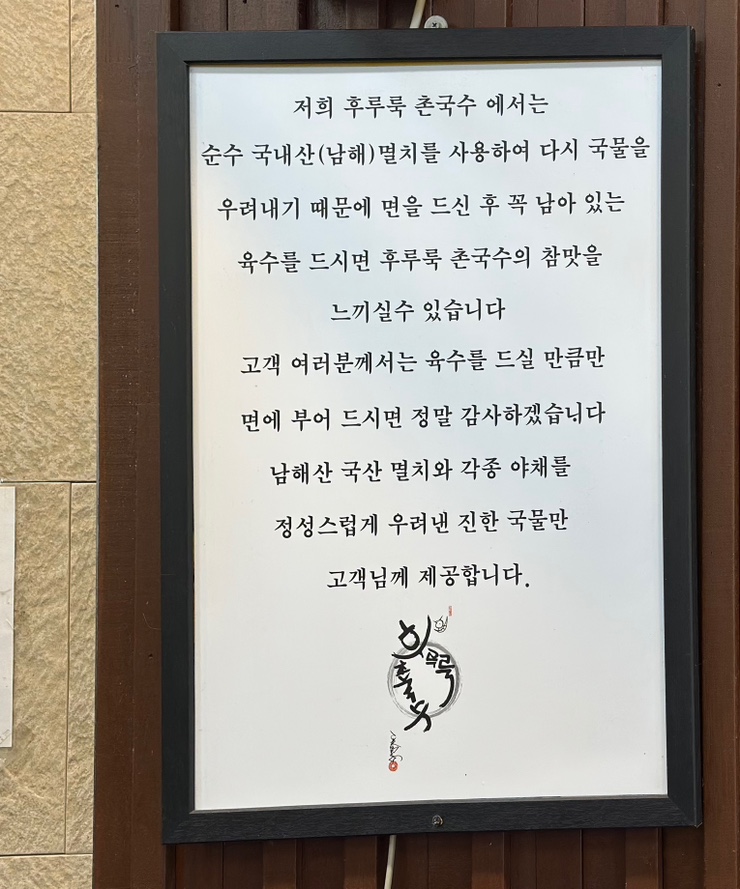 저희 후루룩 촌국수 에서는
순수 국내산(남해)멸치를 사용하여 다시 국물을
우려내기 때문에 면을 드신 후 꼭 남아 있는
육수를 드시면 후루룩 촌국수의 참맛을
느끼실수 있습니다
고객 여러분께서는 육수를 드실 만큼만
면에 부어 드시면 정말 감사하겠습니다
남해산 국산 멸치와 각종 야채를
정성스럽게 우려낸 진한 국물만
고객님께 제공합니다.
후루룩
촌국수